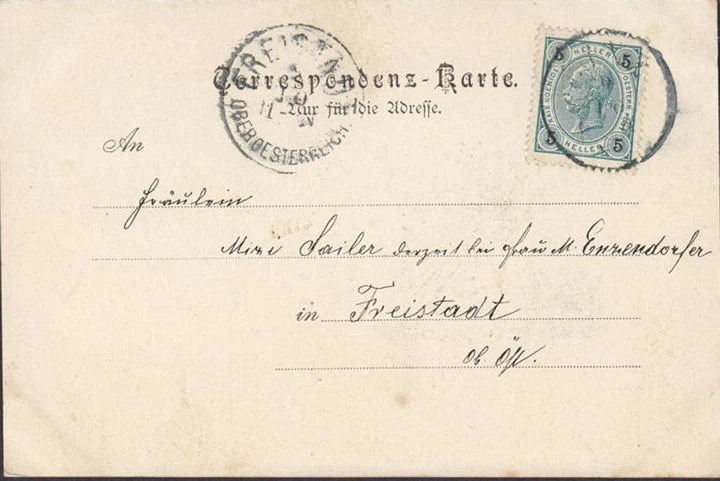 FREISTADT
OBEROESTERREICH
Correspondenz-Karte.
Nur für die Adresse.
5 HELLER 5
KAIS. KOENIGL. OESTERR. POST
5 HELLER 5
An
Fräulein
Mizi Sailer derzeit bei Frau M. Enzendorfer
in Freistadt
ob Öst.